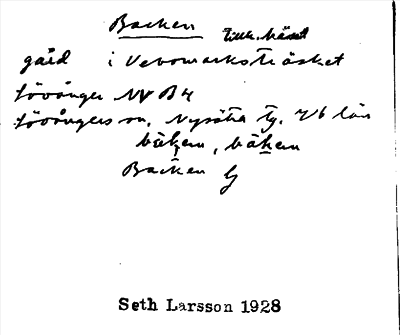 Backen
gård i Vebomarksträsket
Lövånger NV B4
Lövångers sn. Nysätra tg. Vb län
bäken, bäken
Backen G
Seth Larsson 1928